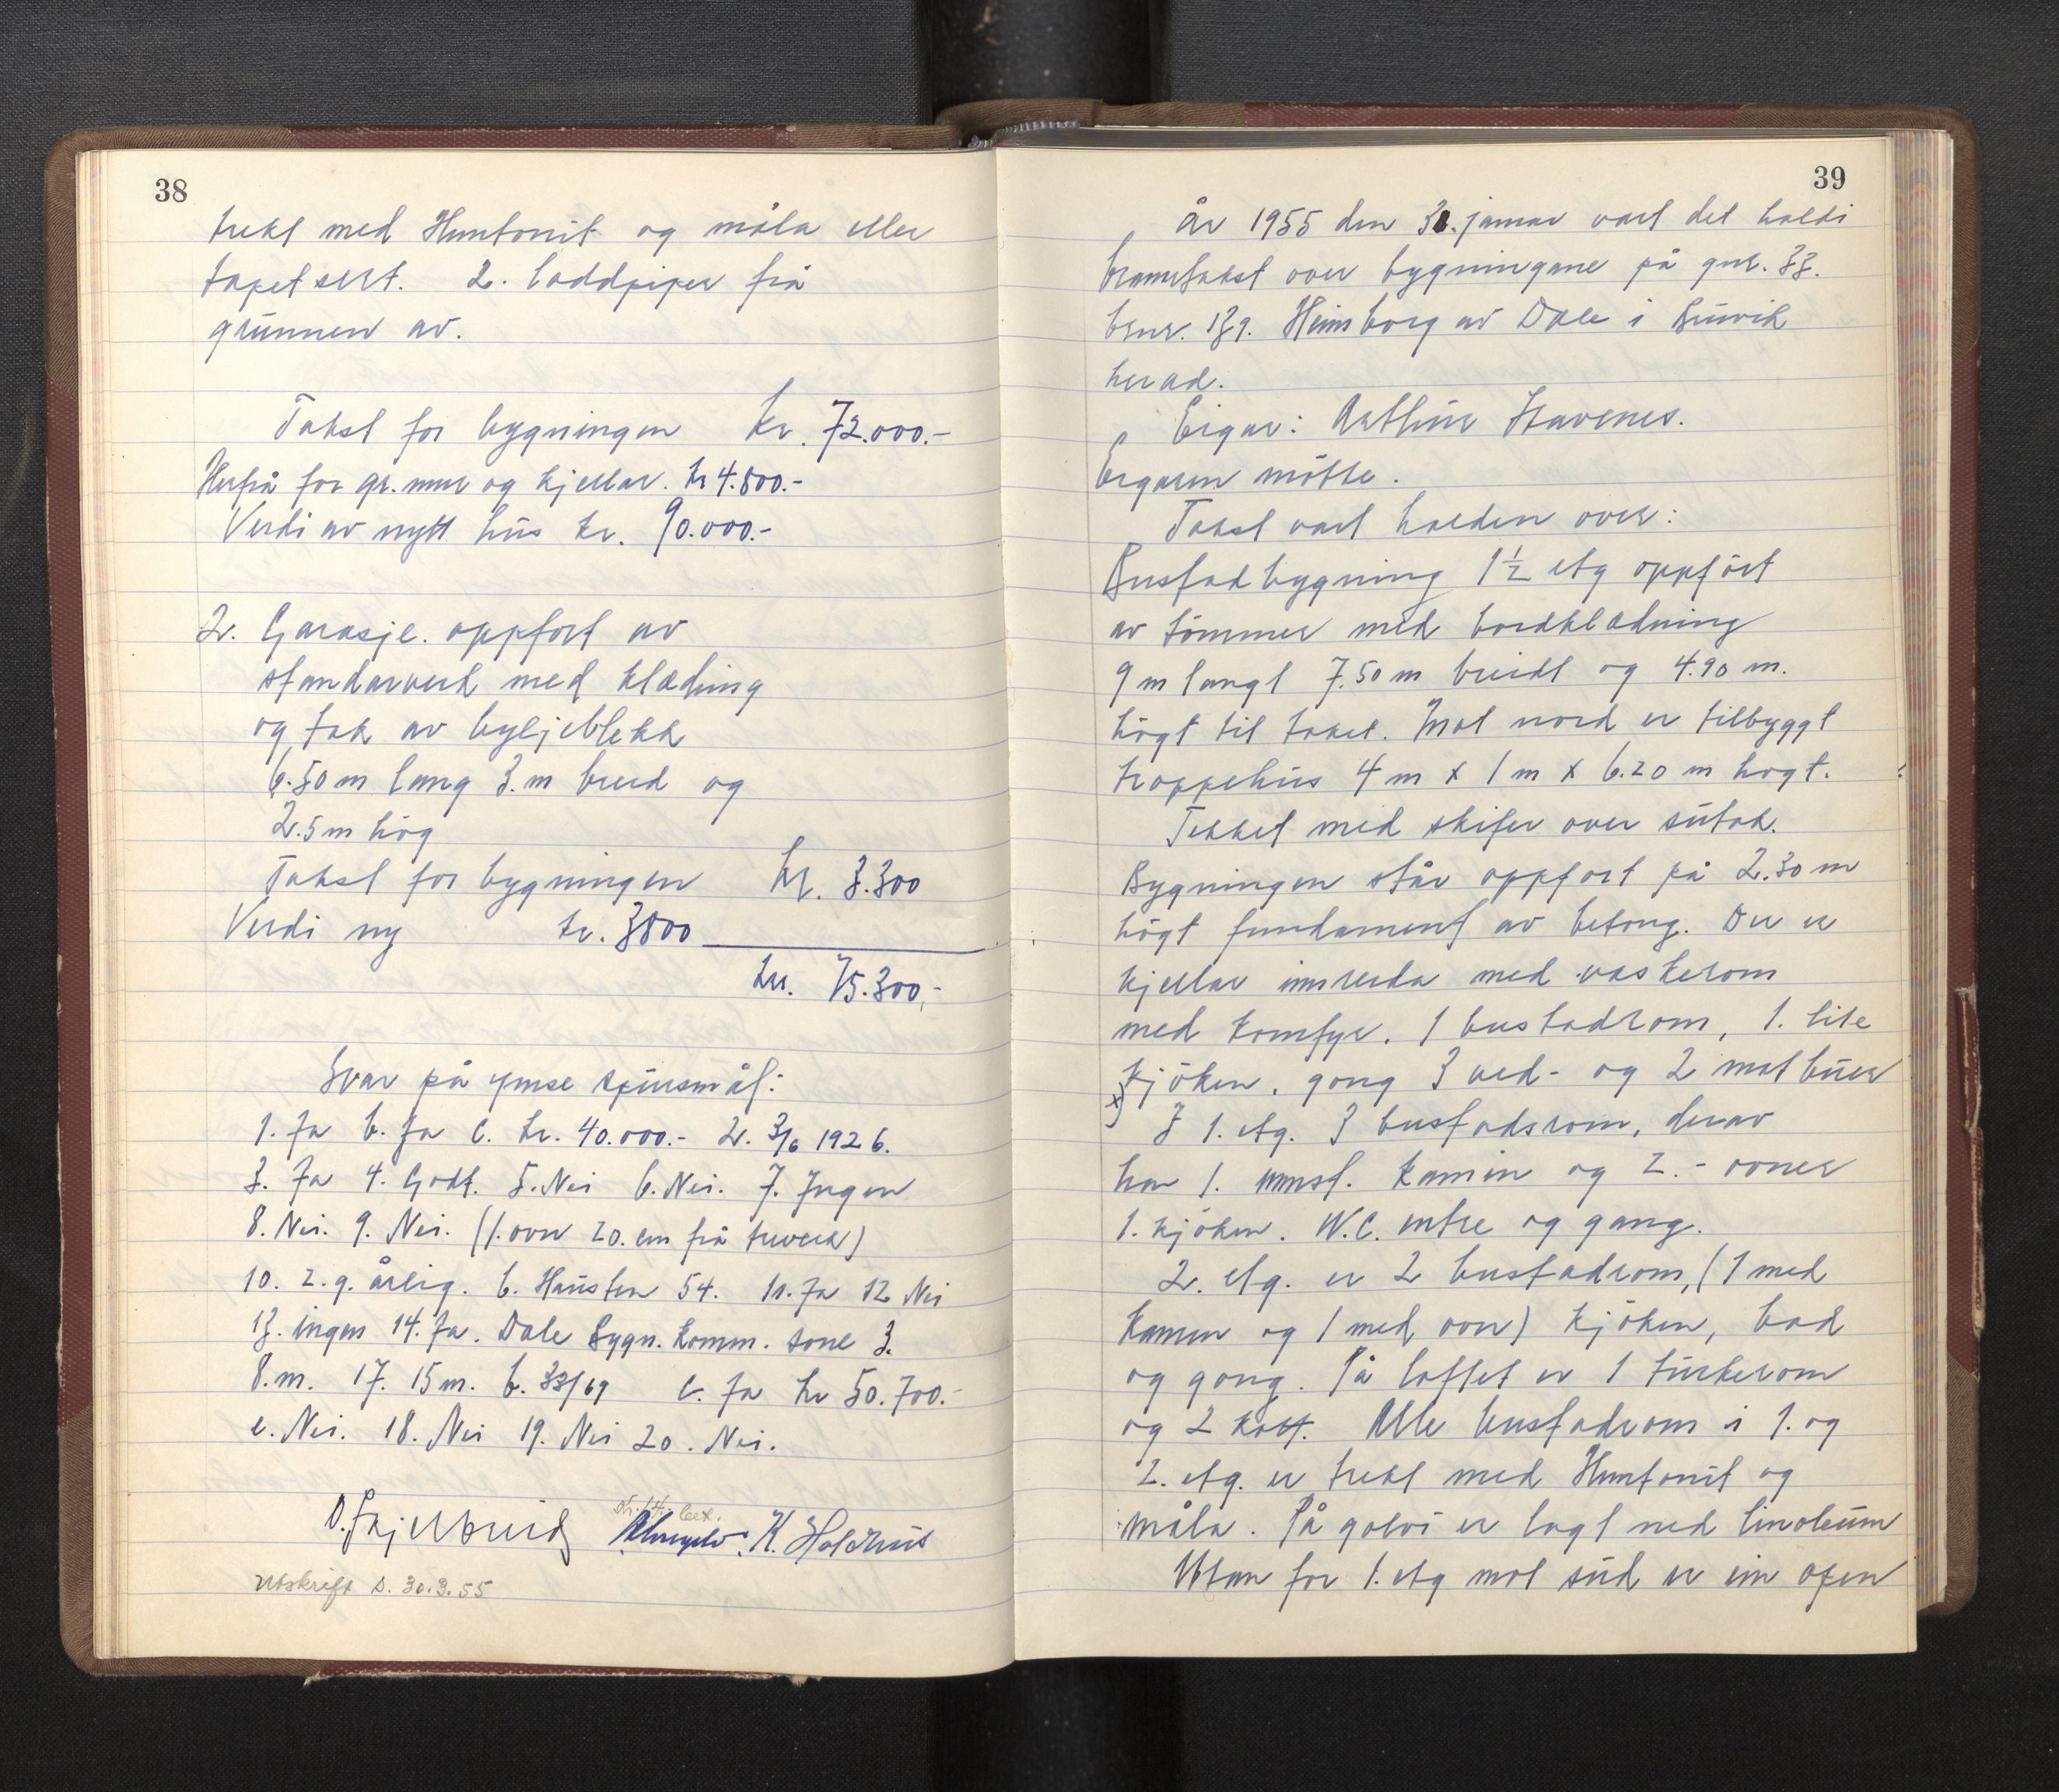 38
trekt med Huntonit og måla eller
tapetsert. 2. loddpiper frå
grunnen av.
Takst for bygningen kr. 72.000.-
Herfrå for gr.mur og kjellar. kr 4.800.-
Verdi av nytt hus kr. 90.000.-
2. Garasje. oppført av
standarverk med klædning
og tak av bylgjeblekk
6.50 m lang 3. m breid og
2.5 m høg
Takst for bygningen kr. 3.300
Verdi ny kr. 3800
kr. 75.300,-
Svar på ymse spursmål:
1. Ja b. Ja c. kr. 40.000.- 2. 3/6 1926.
3. Ja 4. Godt. 5. Nei 6. Nei. 7. Ingen
8. Nei. 9. Nei. (1. ovn 20. cm frå treverk)
10. 2. g. årlig. b. Hausten 54. 11. Ja 12 Nei
13. ingen 14. Ja. Dale Bygn. komm. sone 3.
8. m. 17. 15 m. b. 33/69 c. Ja kr 50.700.-
e. Nei. 18. Nei 19. Nei 20. Nei.
K. Holdhus
Utskrift s. 30.3.55
39
År 1955 den 31. januar vart det haldi
branntakst over bygningane på gnr. 33.
brnr. 139. Heimborg av Dale i Bruvik
herad.
Eigar: Arthur Stavenes.
Eigaren møtte.
Takst vart halden over:
Bustadbygning 1½ etg oppført
av tømmer med bordklædning
9 m langt 7.50 m breidt og 4.90 m.
høgt til taket. Mot nord er tilbyggt
trappehus 4 m x 1 m x 6.20 m høgt.
Tekket med skifer over sutak.
Bygningen står oppført på 2.30 m
høgt fundament av betong. Der er
kjellar innreida med vaskerom
med komfyr. 1 bustadrom, 1. lite
x) kjøken. gong 3 ved- og 2 matbuer
I 1. etg. 3 bustadsrom, derav
har 1. kamin og 2. - ovner
1. kjøken. W.C. entre og gang.
2. etg. er 2 bustadrom, (1 med
kamin og 1 med ovn) kjøken, bad
og gong. På loftet er 1 turkerom
og 2 kott. Alle bustadrom i 1. og
2. etg. er trekt med Huntonit og
måla. På golvi er lagt ned linoleum
Utan for 1. etg mot sud er ein open